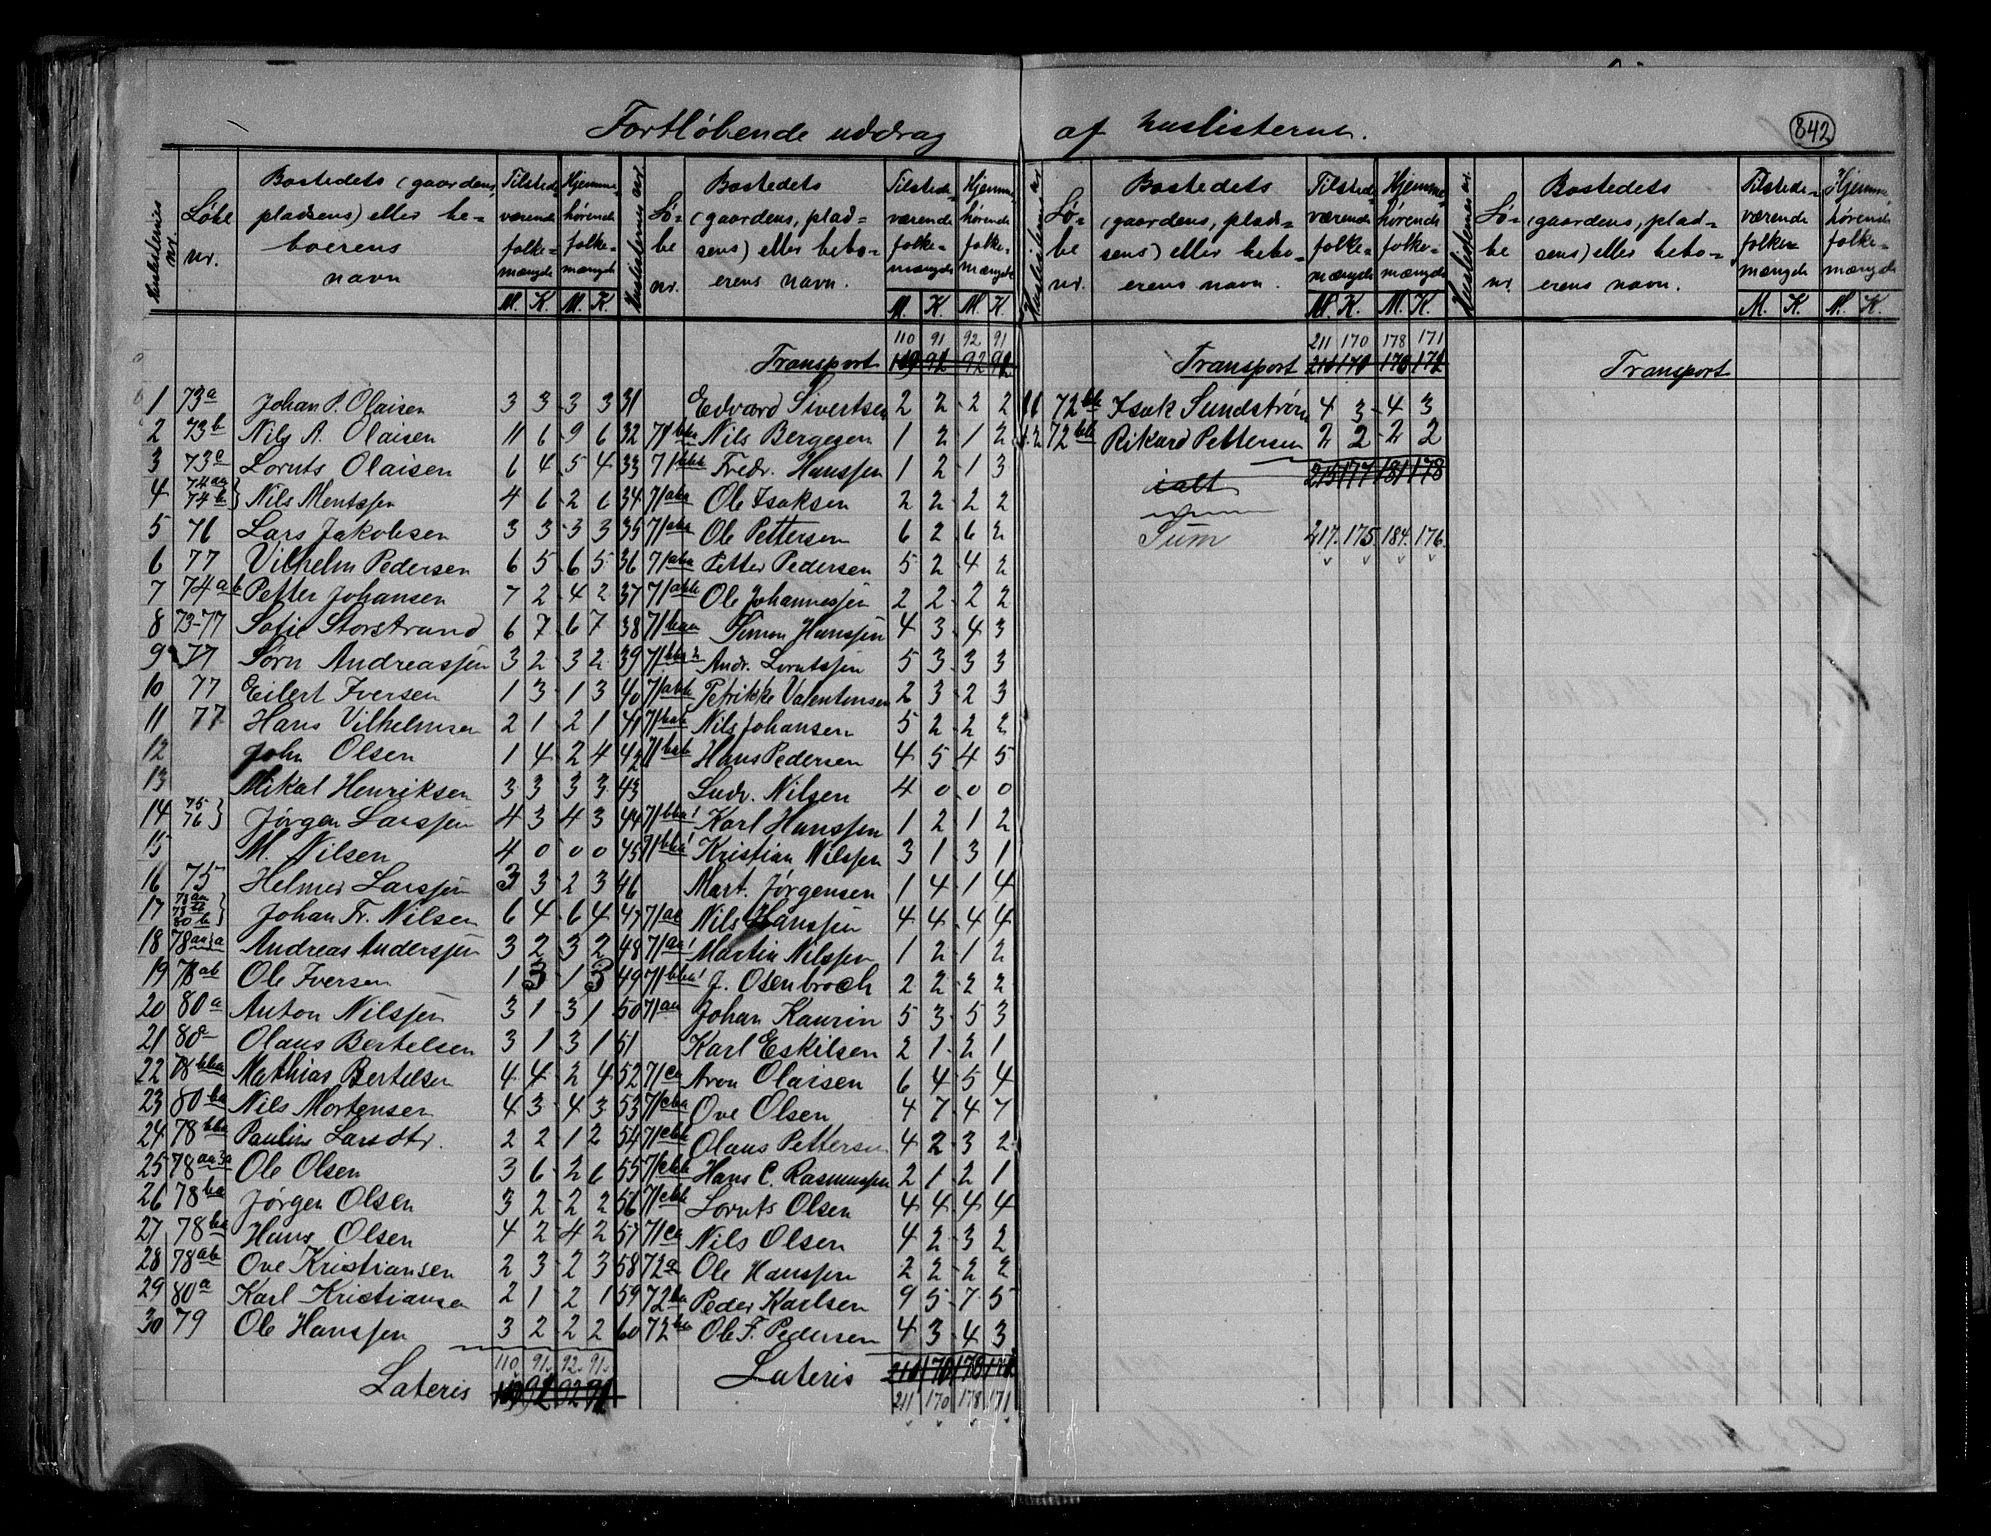 842
Fortløbende uddrag af huslisterne.
Huslisternes nr. Løbe nr. Bostedets (gaardens, pladsens) eller beboerens navn Tilstedeværende folkemængde M. K. Hjemmehørende folkemængde M. K.
1 73a Johan P. Olaisen 3 3 3 3
2 73b Nils A. Olaisen 11 6 9 6
3 73c Loruts Olaisen 6 4 5 4
4 74aa 74b } Nils Mentssen 4 6 2 6
5 76 Lars Jakobsen 3 3 3 3
6 77 Vilhelm Pedersen 6 5 6 5
7 74ab Petter Johansen 7 2 4 2
8 73-77 Sofie Storstrand 6 7 6 7
9 77 Sørn Andreassen 3 2 3 2
10 77 Eilert Iversen 1 3 1 3
11 77 Hans Vilhelmsen 2 1 2 1
12 John Olsen 1 4 2 4
13 Mikal Henriksen 3 3 3 3
14 75 76 } Jørgen Larssen 4 3 4 3
15 M. Nilsen 4 0 0 0
16 75 Helmer Larssen 3 3 2 3
17 Johan Fr. Nilsen 6 4 6 4
18 Andreas Anderssen 3 2 3 2
19 78ab Ole Iversen 1 3 1 3
20 80a Anton Nilssen 3 1 3 1
21 80 Olaus Bertelsen 3 1 3 1
22 78bba Mathias Bertelsen 4 4 2 4
23 80ba Nils Mortensen 4 3 4 3
24 78bba Pauline Larsdtr. 2 2 1 2
25 78aa3a Ole Olsen 3 6 2 6
26 78ba Jørgen Olsen 3 2 2 2
27 78ba Hans Olsen 4 2 4 2
28 78ab Ove Kristiansen 2 3 2 3
29 80a Karl Kristiansen 2 1 2 1
30 79 Ole Hanssen 3 2 2 2
110 91 92 91
Lateris 109 92 92 92
Huslisternes nr. Løbe nr. Bostedets (gaardens, pladsens) eller beboerens navn. Tilstedeværende folkemængde M. K. Hjemmehørende folkemængde M. K.
110 91 92 91
Transport 109 92 92 92
31 Edvard Sivertsen 2 2 2 2
32 Nils Bergesen 1 2 1 2
33 71bbb Fredr. Hanssen 1 2 1 3
34 71aba Ole Isaksen 2 2 2 2
35 71aba Ole Pettersen 6 2 6 2
36 71aba Petter Pedersen 5 2 4 2
37 71abb Ole Johannessen 2 2 2 2
38 71baa Simon Hanssen 4 3 4 3
39 71bba2 Andr. Lorutssen 5 3 3 3
40 71abb Petrikke Valentinsen 2 3 2 3
41 71bab Nils Johansen 5 2 2 2
42 71bab Hans Pedersen 4 5 4 5
43 Ludv. Nilsen 4 0 0 0
44 71bba1 Karl Hanssen 1 2 1 2
45 71bba1 Kristian Nilssen 3 1 3 1
46 Mart. Jørgensen 1 4 1 4
47 Nils Hanssen 4 4 4 4
48 71aa1 Martin Nilssen 1 2 1 2
49 71bba1 J. Osenbroch 2 2 2 2
50 71aa Johan Kaurin 5 3 5 3
51 Karl Eskilsen 2 1 2 1
52 71ca Aron Olaisen 6 4 5 4
53 71cba Ove Olsen 4 7 4 7
54 71cbb Olaus Pettersen 4 2 3 2
55 71cbb Hans C. Rasmussen 2 1 2 1
56 71cbb Loruts Olsen 4 4 4 4
57 71ca Nils Olsen 4 2 3 2
58 72a Ole Hanssen 2 2 2 2
59 72ba Peder Karlsen 9 5 7 5
60 72ba Ole F. Pedersen 4 3 4 3
Lateris 210 170 178 172
211 170 178 171
Huslisternes nr. Løbe nr. Bostedets (gaardens, pladsens) eller beboerens navn. Tilstedeværende folkemængde M. K. Hjemmehørende folkemængde M. K.
211 170 178 171
Transport 210 170 178 172
72bb Isak Sundstrøm 4 3 4 3
72bb Rikard Pettersen 2 2 2 2
ialt 215 177 181 178
Sum 217. 175. 184. 176.
Huslisternes nr. Løbe nr. Bostedets (gaardens, pladsens) eller beboerens navn. Tilstedeværende folkemængde M. K. Hjemmehørende folkemængde M. K.
Transport